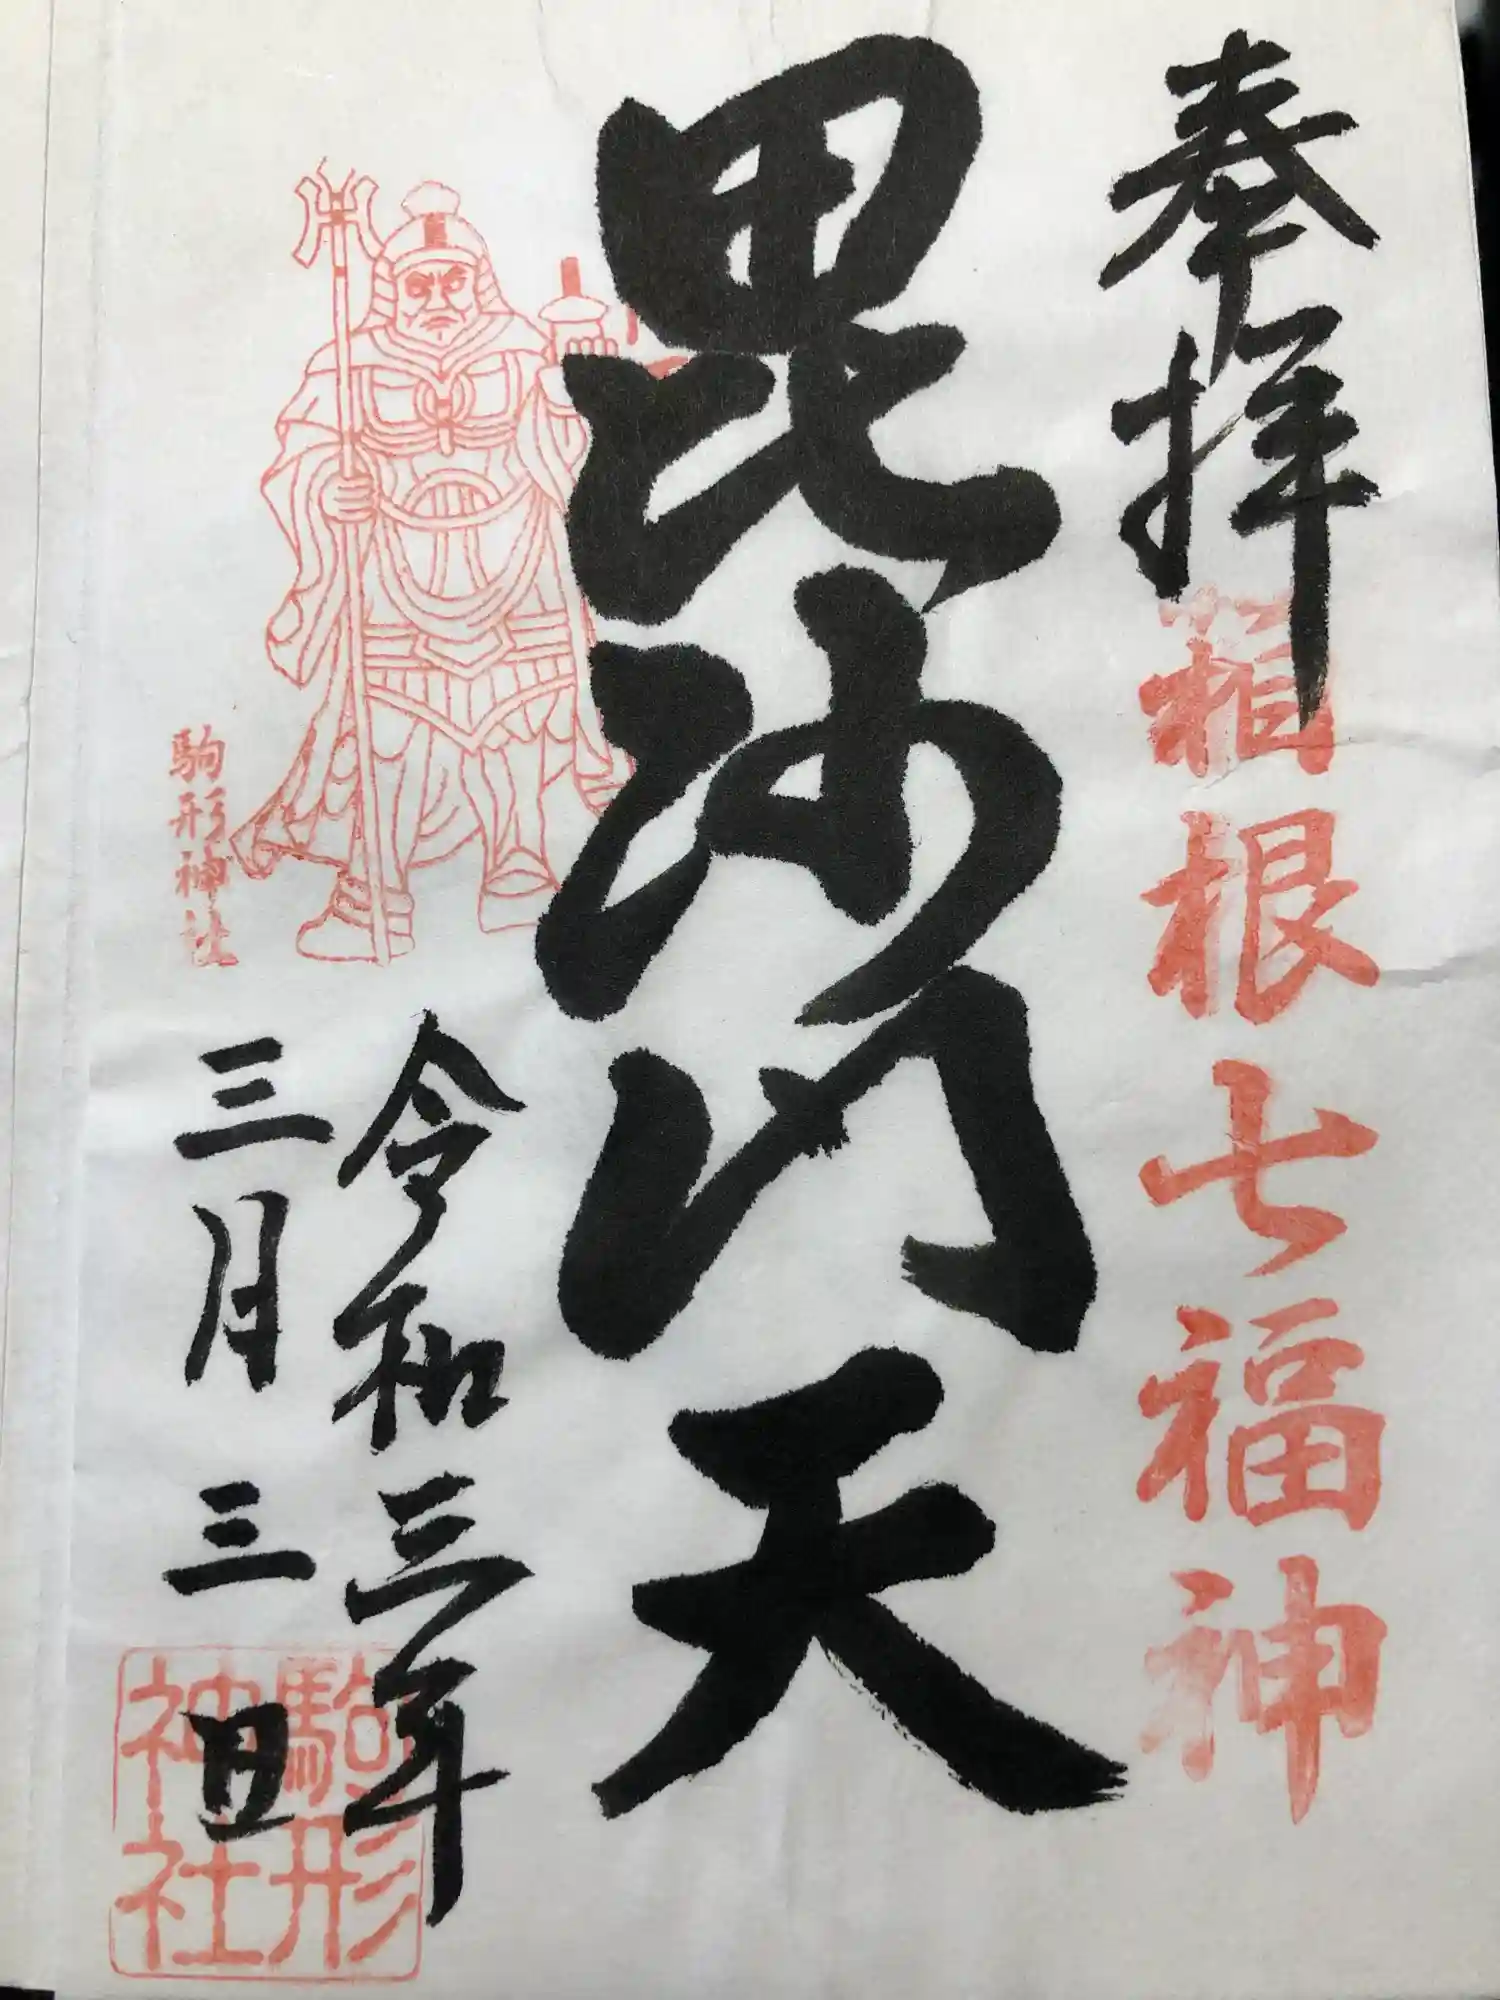 奉拝
箱根七福神
毘沙門天
駒形神社
令和三年
三月三日
駒形
神社